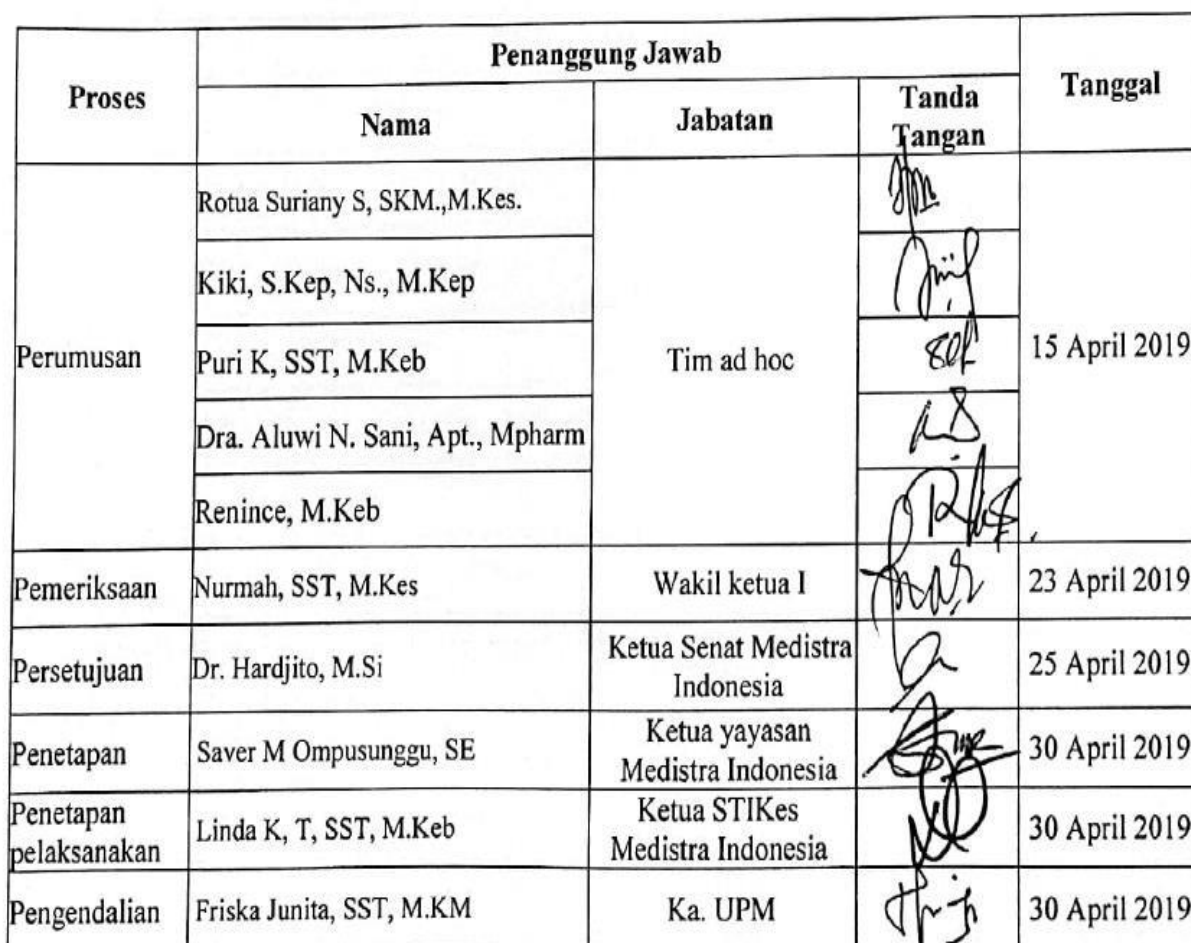 Proses
Penanggung Jawab
Tanggal
Nama
Jabatan
Tanda
Tangan
Perumusan
Rotua Suriany S, SKM.,M.Kes.
Kiki, S.Kep, Ns., M.Kep
Puri K, SST, M.Keb
Dra. Aluwi N. Sani, Apt., Mpharm
Renince, M.Keb
Tim ad hoc
15 April 2019
Pemeriksaan
Nurmah, SST, M.Kes
Wakil ketua I
23 April 2019
Persetujuan
Dr. Hardjito, M.Si
Ketua Senat Medistra
Indonesia
25 April 2019
Penetapan
Saver M Ompusunggu, SE
Ketua yayasan
Medistra Indonesia
30 April 2019
Penetapan
pelaksanakan
Linda K, T, SST, M.Keb
Ketua STIKes
Medistra Indonesia
30 April 2019
Pengendalian
Friska Junita, SST, M.KM
Ka. UPM
30 April 2019